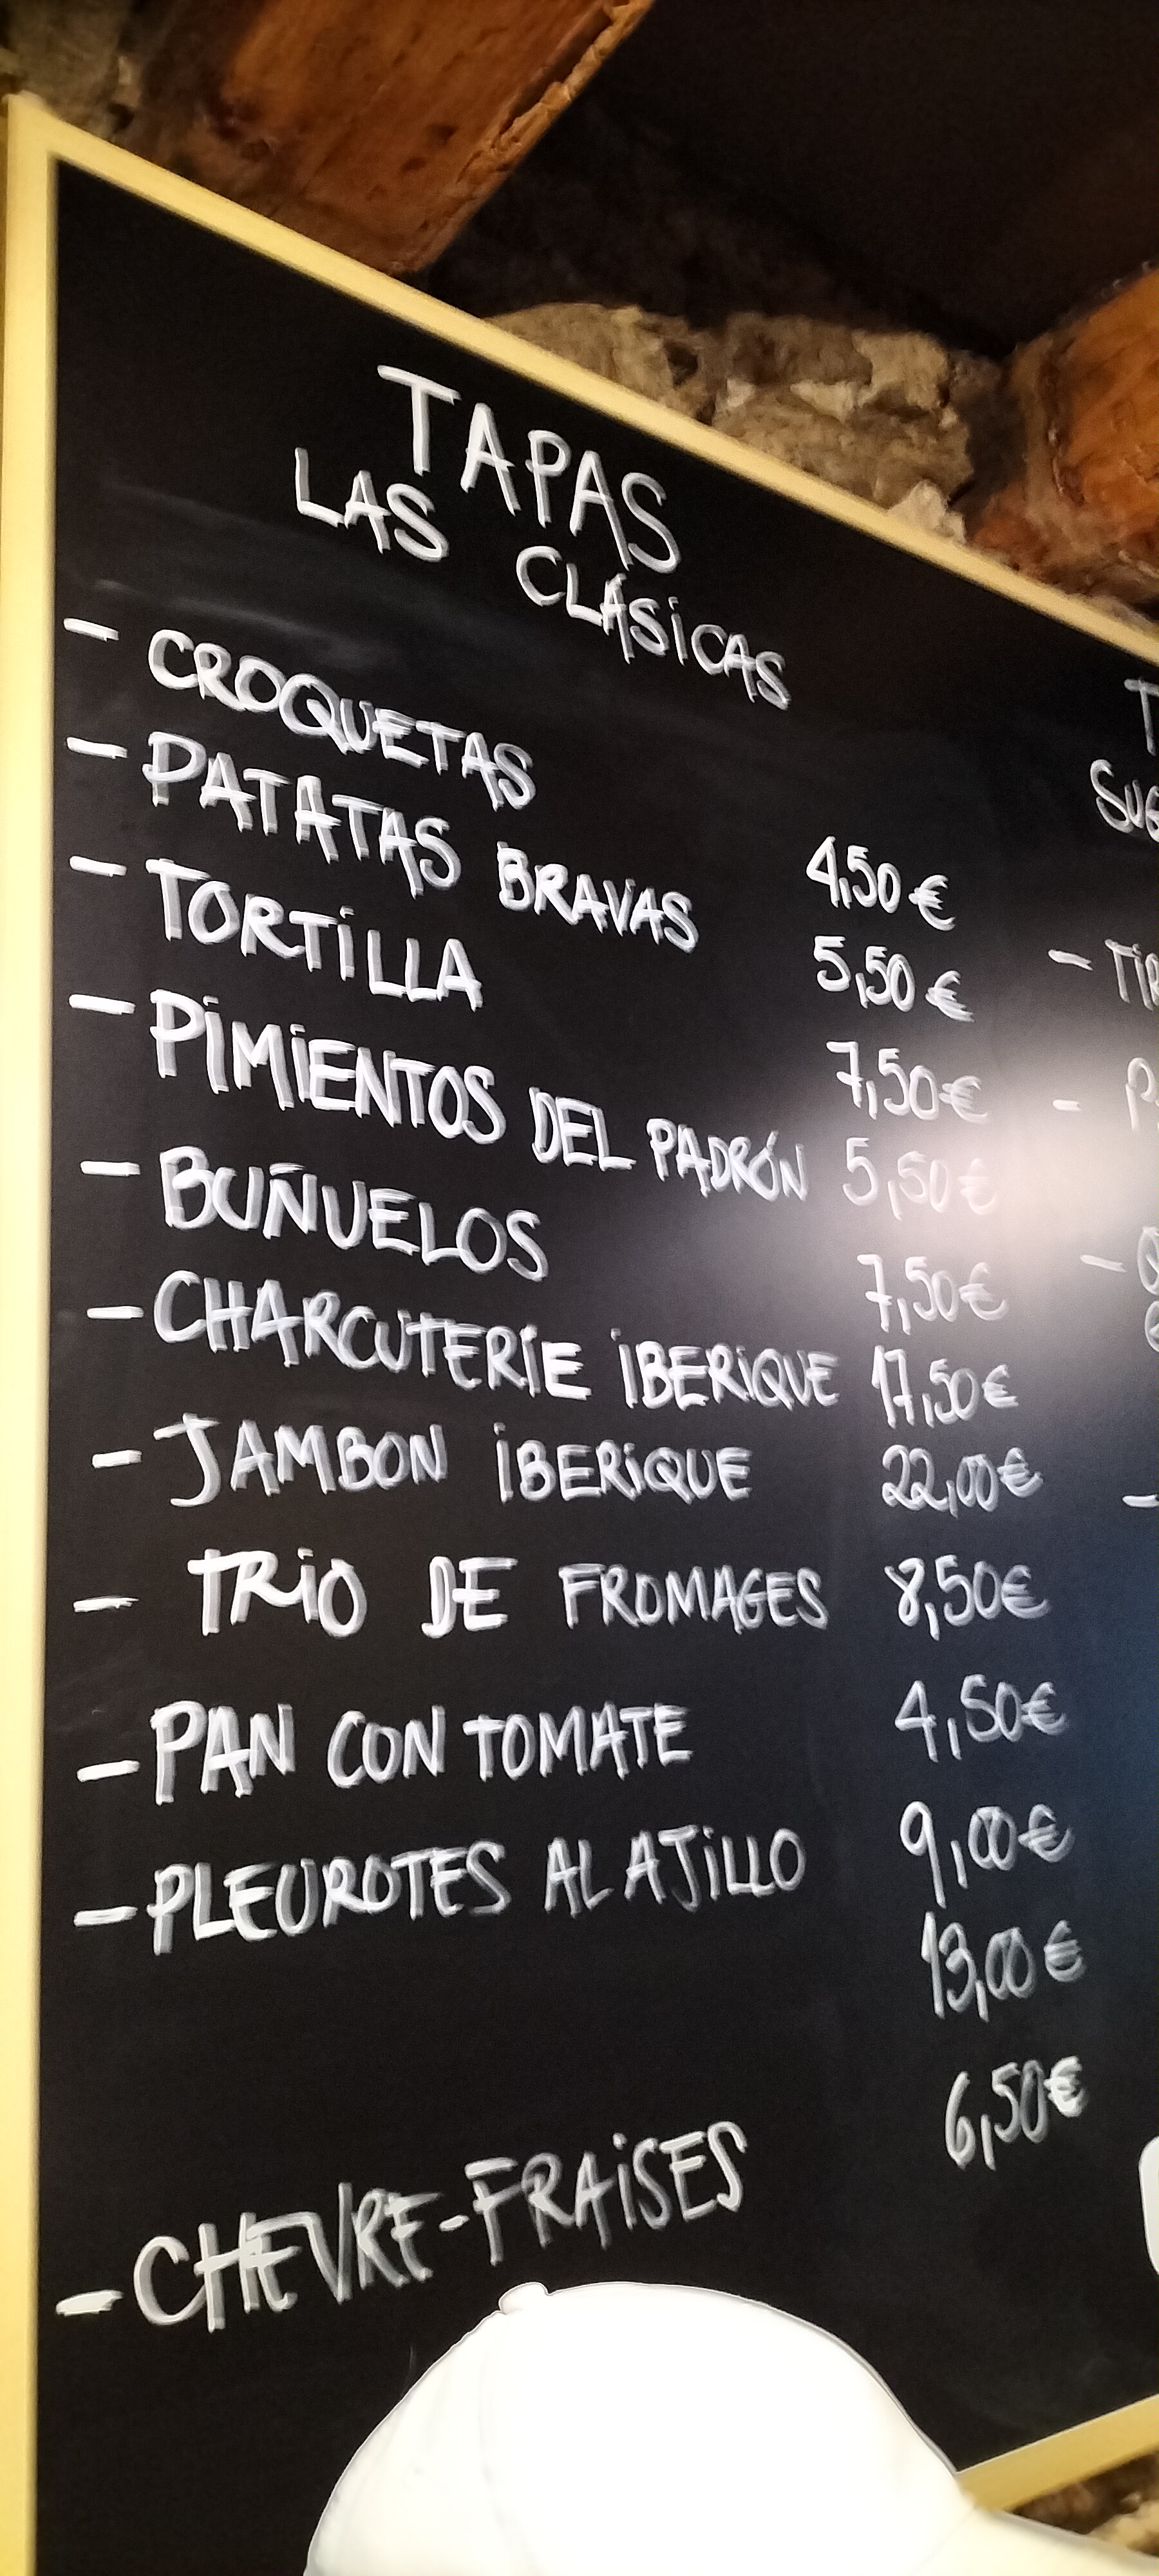 TAPAS
LAS CLÁSICAS
- CROQUETAS 4,50€
- PATATAS BRAVAS 5,50€
- TORTILLA 7,50€
- PIMIENTOS DEL PADRÓN 5,50€
- BUÑUELOS 7,50€
- CHARCUTERIE IBERIQUE 17,50€
- JAMBON IBERIQUE 22,00€
- TRIO DE FROMAGES 8,50€
- PAN CON TOMATE 4,50€
- PLEUROTES AL AJILLO 9,00€
13,00€
- CHEVRE-FRAISES 6,50€